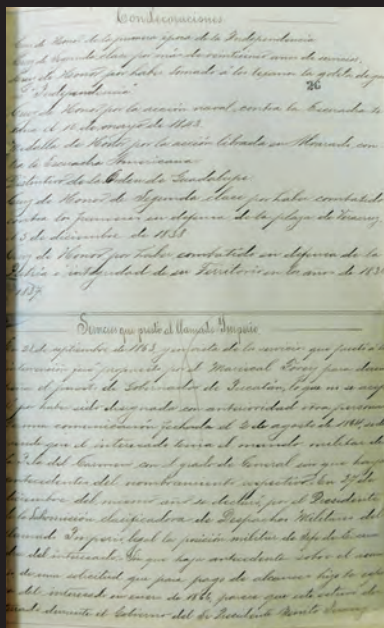 Condecoraciones
Cruz de Honor de la primera época de la Independencia
Cruz de segunda clase por más de veinticinco años de servicio.
Cruz de Honor por haber tomado a los tejanos la goleta de gue
"Independencia" 26
Cruz de Honor por la acción naval contra la Escuadra te
el 16 de mayo de 1843.
Medalla de Honor por la acción librada en Alvarado con
la Escuadra Americana
Distintivo de la Orden de Guadalupe
Cruz de Honor de Segunda clase por haber combatido
contra los franceses en defensa de la plaza de Veracruz
el 5 de diciembre de 1838
Cruz de Honor por haber combatido en defensa de la
Patria e integridad de su Territorio en los años de 183
1837.
Servicios que prestó al llamado Imperio
En 21 de septiembre de 1863 y en vista de los servicios que prestó a la
intervención fue propuesto por el Mariscal Forey para
el puesto de Gobernador de Yucatán, lo que no se
por haber sido designada con anterioridad otra persona
una comunicación fechada el 2 de agosto de 1864,
que el interesado tenía el mando militar de
la Isla del Carmen con el grado de General sin que haya
antecedentes del nombramiento respectivo. En 27 de
diciembre del mismo año se declaró por el Presidente
de la Subcomisión clasificadora de Despachos Militares del
llamado Imperio legal la posición militar de Jefe de
del interesado. Sin que haya antecedente sobre el
de una solicitud que para pago de alcances hizo la
del interesado en enero de parece que este estuvo
durante el Gobierno del Sr. Presidente Benito Juárez